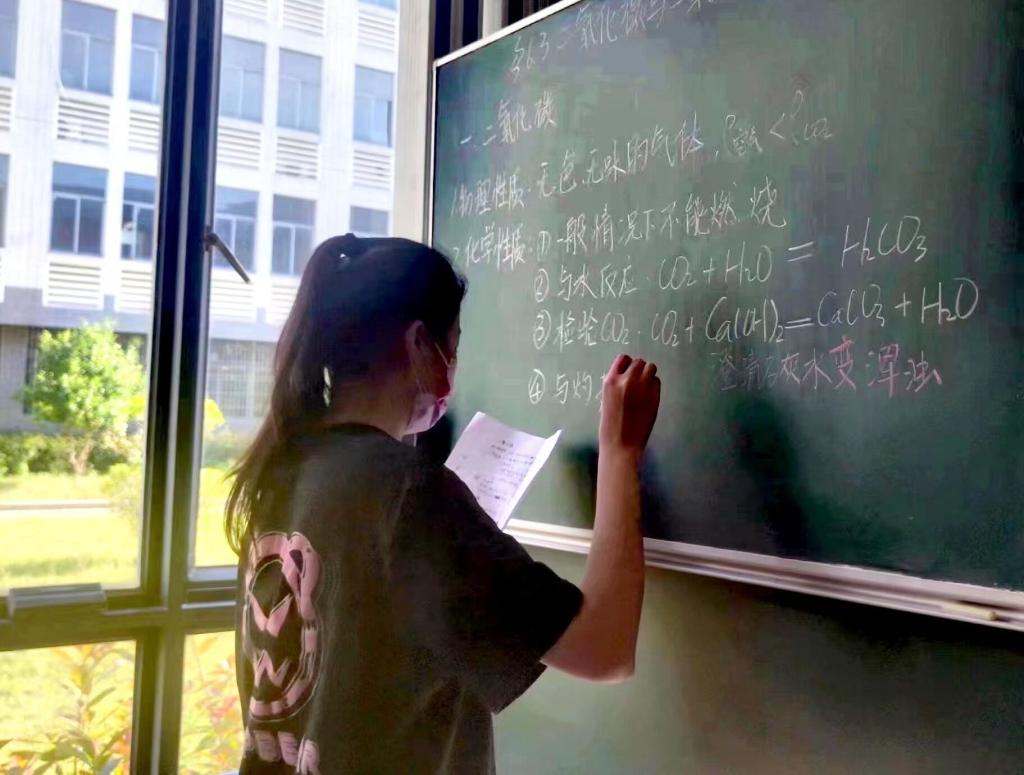 §6.3 二氧化碳与一氧
一. 二氧化碳
1.物理性质. 无色.无味的气体, ρ空气<ρCO2
2.化学性质: ①一般情况下不能燃烧
②与水反应. CO2+H2O = H2CO3
③检验CO2. CO2+Ca(OH)2=CaCO3+H2O
澄清石灰水变浑浊
④与灼